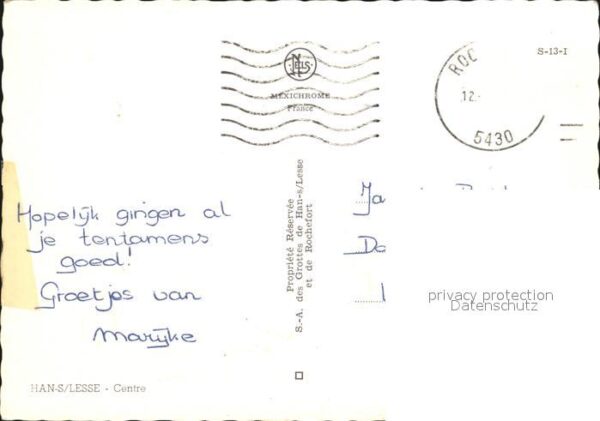 NELS
MEXICHROME
France
S-13-I
ROC
12.
5430
Hopelijk gingen al
je tentamens
goed!
Groetjes van
Marijke
HAN-S/LESSE - Centre
Propriété Réservée
S.-A. des Grottes de Han-s/Lesse
et de Rochefort
Ja
De
privacy protection
Datenschutz